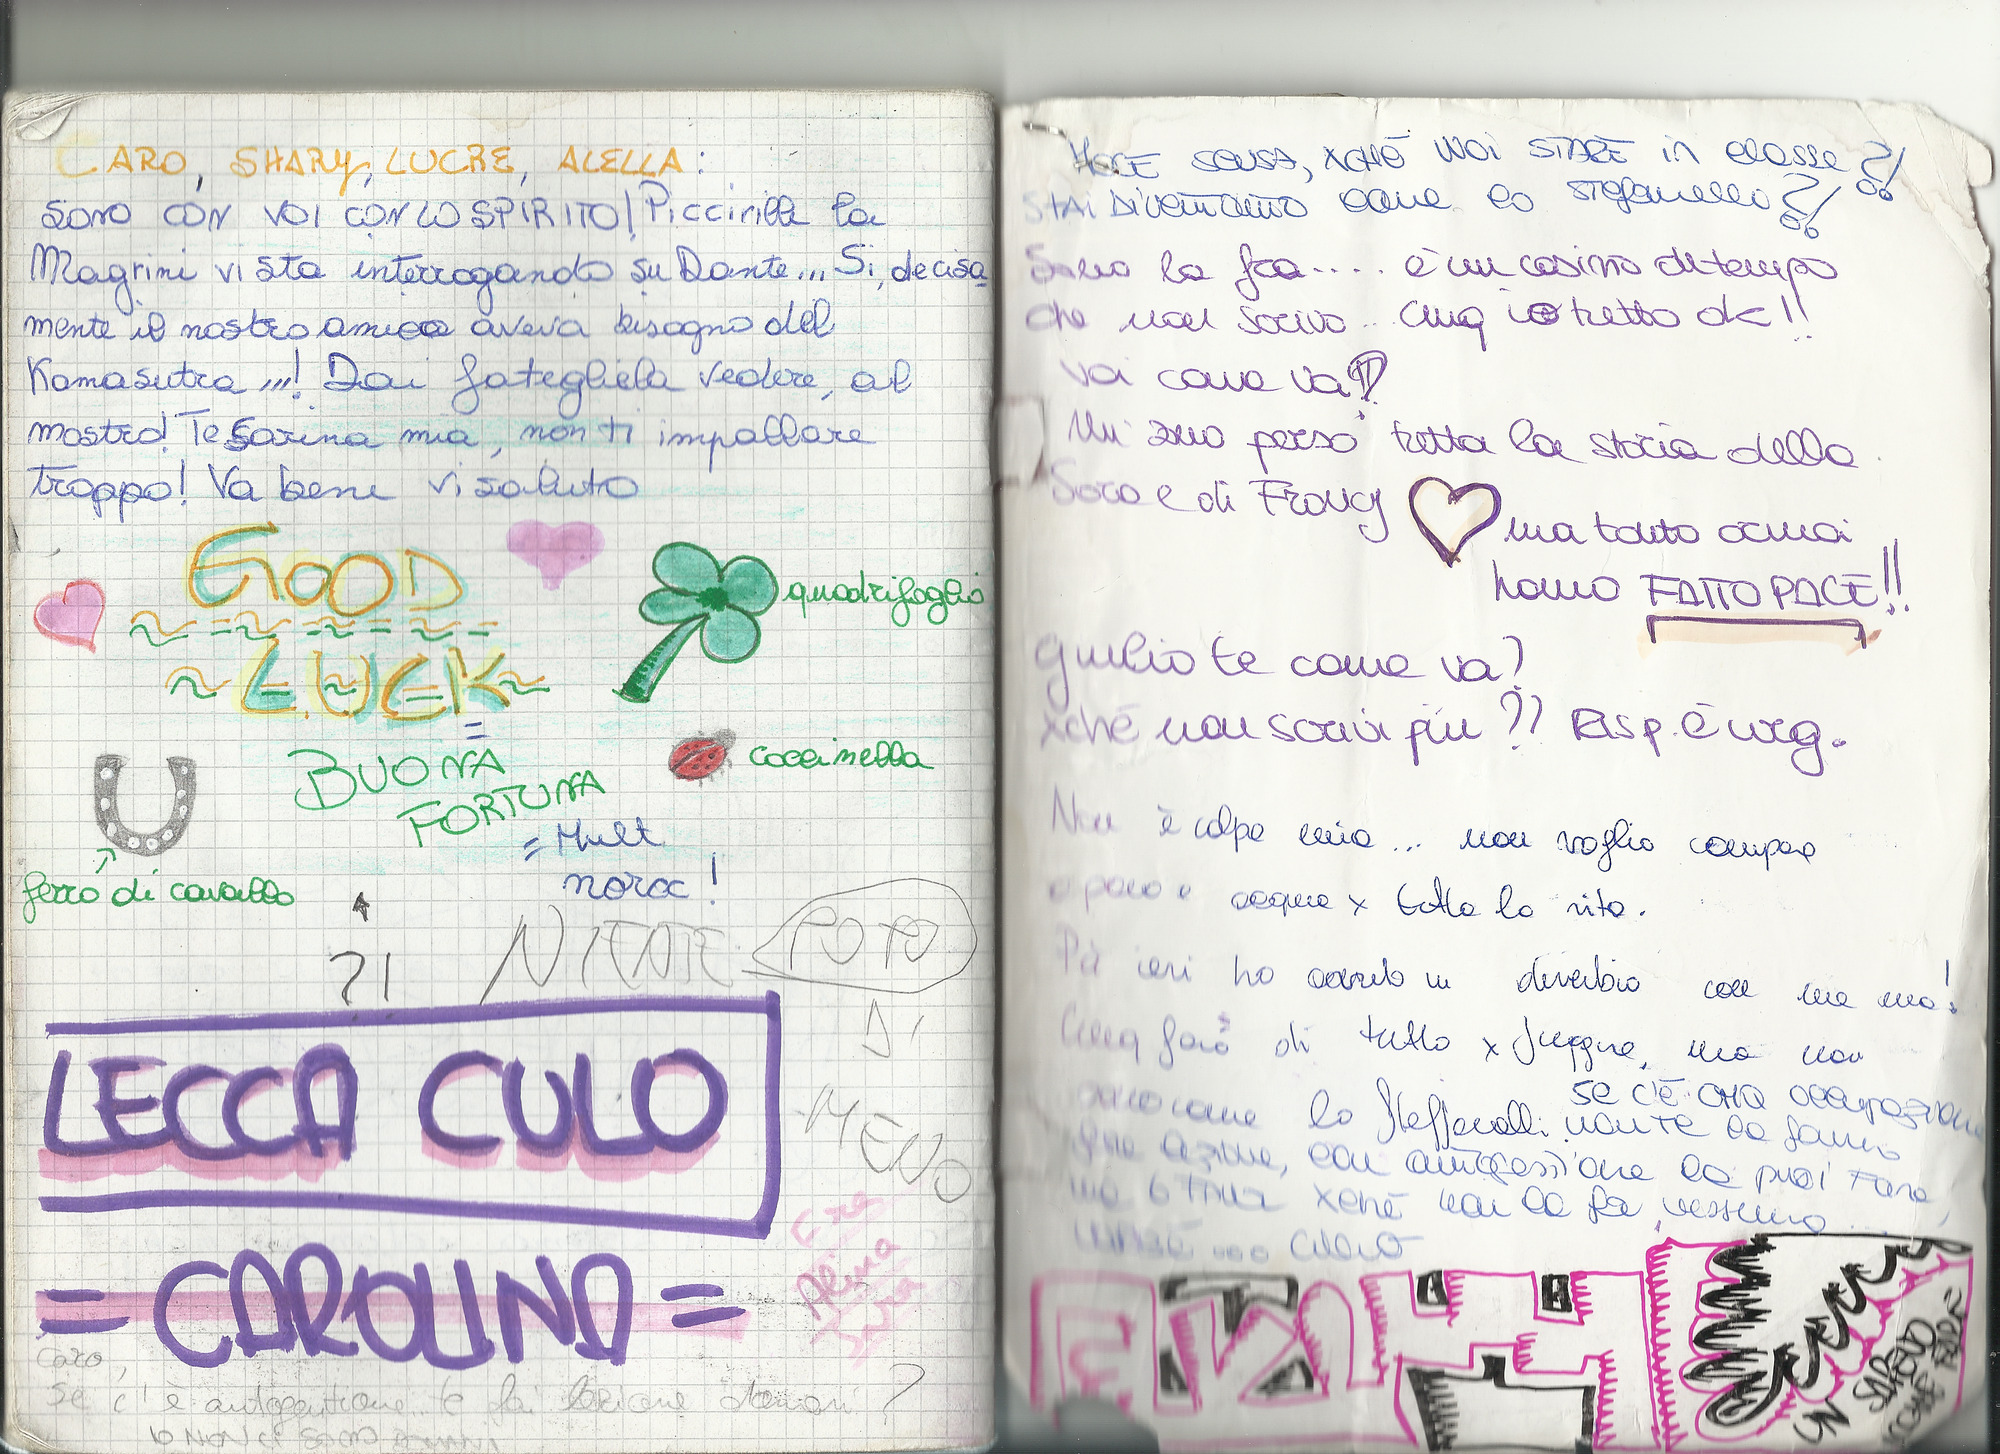 CARO, SHARY, LUCRE, ALELLA:
SONO CON VOI CON LO SPIRITO! Piccirilla la
Magrini vi sta interrogando su Dante... Si, decisa
mente il nostro amico aveva bisogno del
Kamasutra ,,,! Dai fategliela vedere, al
mostro! Te Sarina mia, non ti impallare
troppo! Va bene vi saluto
GOOD
LUCK
quadrifoglio
=
BUONA
FORTUNA
coccinella
= Mult
noroc!
ferro di cavallo
?!
NIENTE
POPO
DI
MENO
LECCA CULO
= CAROLINA =
Era
Alina
Caro,
Se c'è autogestione te fai lezione domani?
IO NON CI SONO
SCUSA, XCHÉ VUOI STARE in classe?!
STAI DIVENTANDO come lo Stefanello?!
Sono la fra.... è un casino di tempo
che non scrivo... cmq io tutto ok!!
Voi come va?
Mi sono perso tutta la storia della
Sara e di Francy
ma tanto ormai
hanno FATTO PACE!!
Giulio te come va?
xché non scrivi più?? Risp. è urg.
Non è colpa mia... non voglio campare
a pane e acqua x tutta la vita.
Pà ieri ho avuto un diverbio con mia ma!
Cmq farò di tutto x fuggire, ma non
sono come lo Steffanelli.
SE C'È ONA OCCUPAZIONE
NON TE LA fanno
fare lezione, con autogestione la puoi fare,
xché non la fa nessuno...
CIAO
UN SAREMO COME FARE